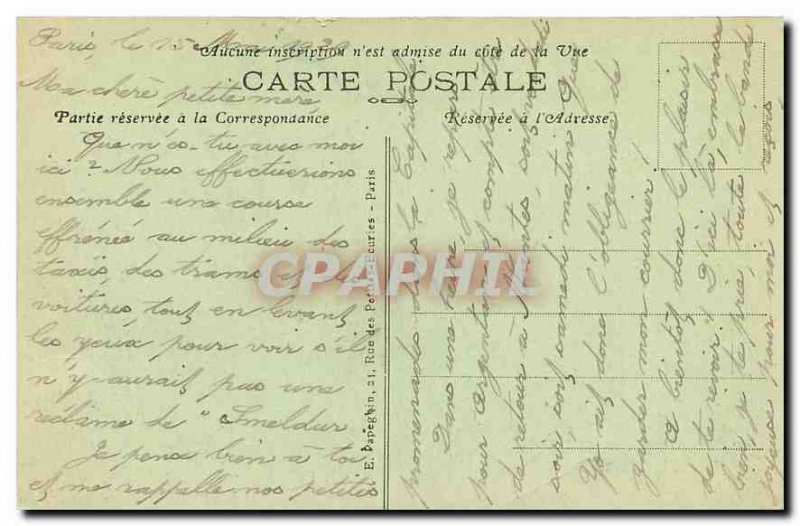 Paris, le 15 Mai 1929
Aucune inscription n'est admise du côté de la Vue
CARTE POSTALE
Ma chère petite mère
Partie réservée à la Correspondance
Réservée à l'Adresse
Que n'es-tu avec moi
ici ? Nous effectuerions
ensemble une course
effrénée au milieu des
taxis, des trams et des
voitures tout en levant
les yeux pour voir s'il
n'y aurait pas une
réclame de "Smeldur
Je pense bien à toi
et me rappelle nos petites
E. Papeghin, 21, Rue des Petites-Ecuries - Paris
promenades dans la Capitale
Dans une heure je repars
pour Argentan et compte être
de retour à Nantes, soit vendredi
soir, soit samedi matin. Que
Yo ait donc l'obligeance de
garder mon courrier !
A bientôt donc le plaisir
de te revoir ! D'ici là, embrasse
bien, je te prie, toute la bande
joyeuse pour moi et reçois
CPARPHIL